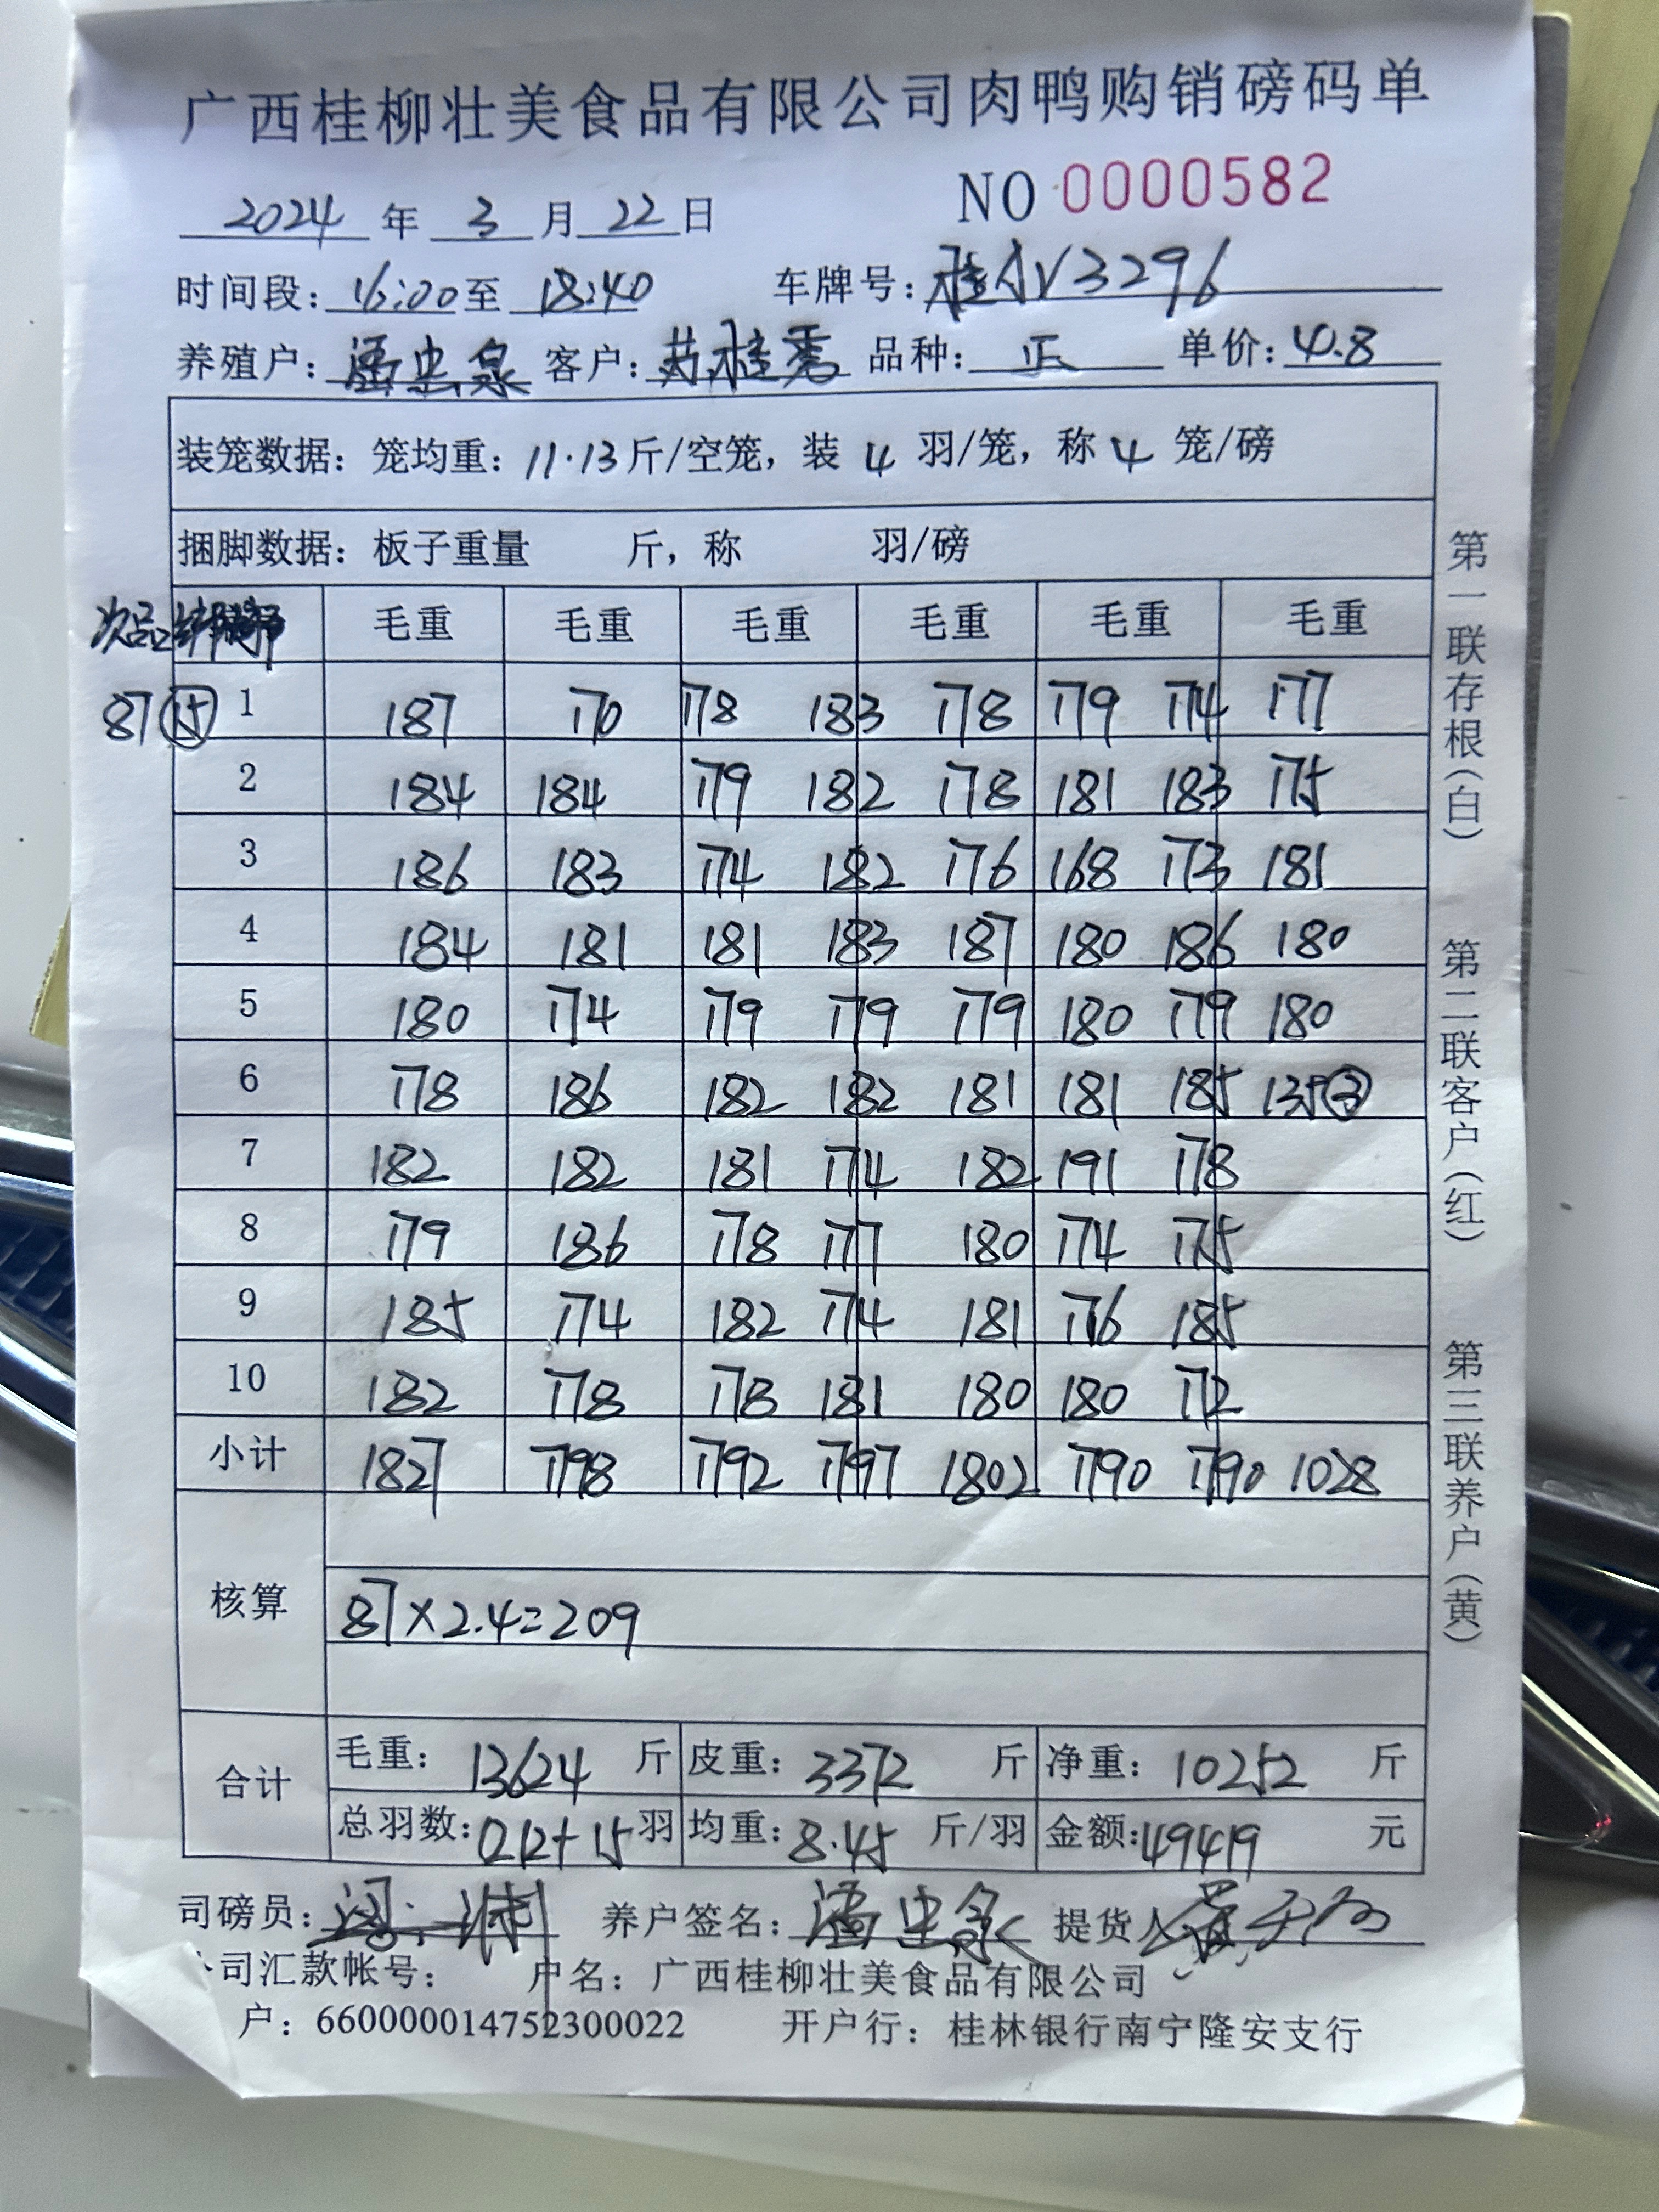 广西桂柳壮美食品有限公司肉鸭购销磅码单
NO 0000582
2024 年 3 月 22 日
时间段: 16:00 至 18:40 车牌号: 桂 V3296
养殖户: 潘忠泉 客户: 桂秀 品种: 正 单价: 4.8
装笼数据: 笼均重: 11.13 斤/空笼, 装 4 羽/笼, 称 4 笼/磅
捆脚数据: 板子重量 斤, 称 羽/磅
次品 毛重 毛重 毛重 毛重 毛重 毛重
87 15 1 187 170 178 183 178 179 174 177
2 184 184 179 182 178 181 183 175
3 186 183 174 182 176 168 173 181
4 184 181 181 183 187 180 186 180
5 180 174 179 179 179 180 179 180
6 178 186 182 182 181 181 185 135 ③
7 182 182 181 174 182 191 178
8 179 186 178 177 180 174 175
9 185 174 182 174 181 176 185
10 182 178 178 181 180 180 172
小计 1827 1798 1792 1797 1802 1790 1790 1028
核算
87×2.4=209
合计
毛重: 13624 斤 皮重: 3372 斤 净重: 10252 斤
总羽数: 1212+15 羽 均重: 8.45 斤/羽 金额: 49419 元
司磅员: 养户签名: 潘忠泉 提货人
司汇款帐号: 户名: 广西桂柳壮美食品有限公司
户: 660000014752300022 开户行: 桂林银行南宁隆安支行
第一联存根(白)
第二联客户(红)
第三联养户(黄)